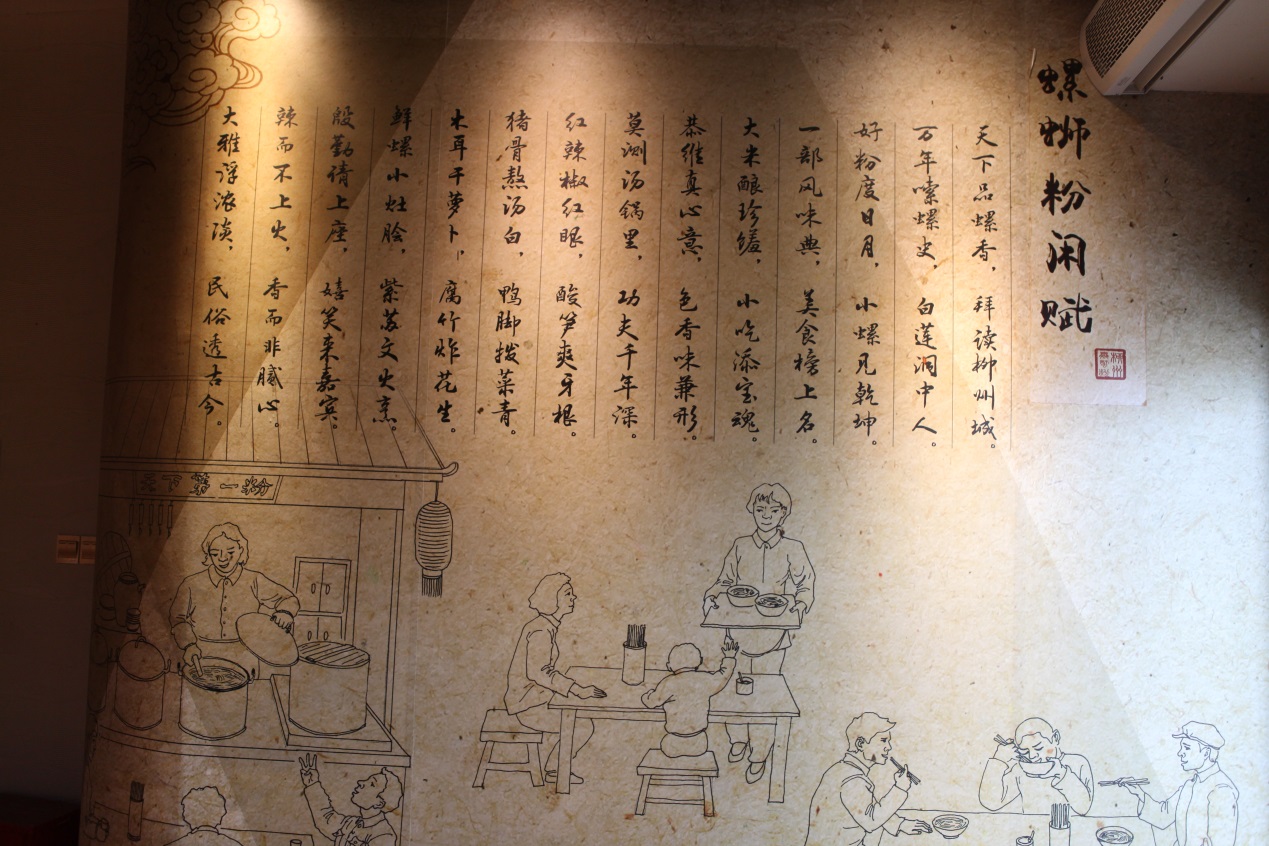 螺蛳粉闲赋
天下品螺香，拜读柳州城。
万年嗦螺史，白莲洞中人。
好粉度日月，小螺见乾坤。
一部风味典，美食榜上名。
大米酿珍馐，小吃添宝魂。
恭维真心意，色香味兼形。
莫测汤锅里，功夫千年深。
红辣椒红眼，酸笋爽牙根。
猪骨熬汤白，鸭脚拨菜青。
木耳干萝卜，腐竹炸花生。
鲜螺小灶脍，紫苏文火烹。
殷勤请上座，嬉笑来嘉宾。
辣而不上火，香而非腻心。
大雅浮浓淡，民俗透古今。
天下第一粉